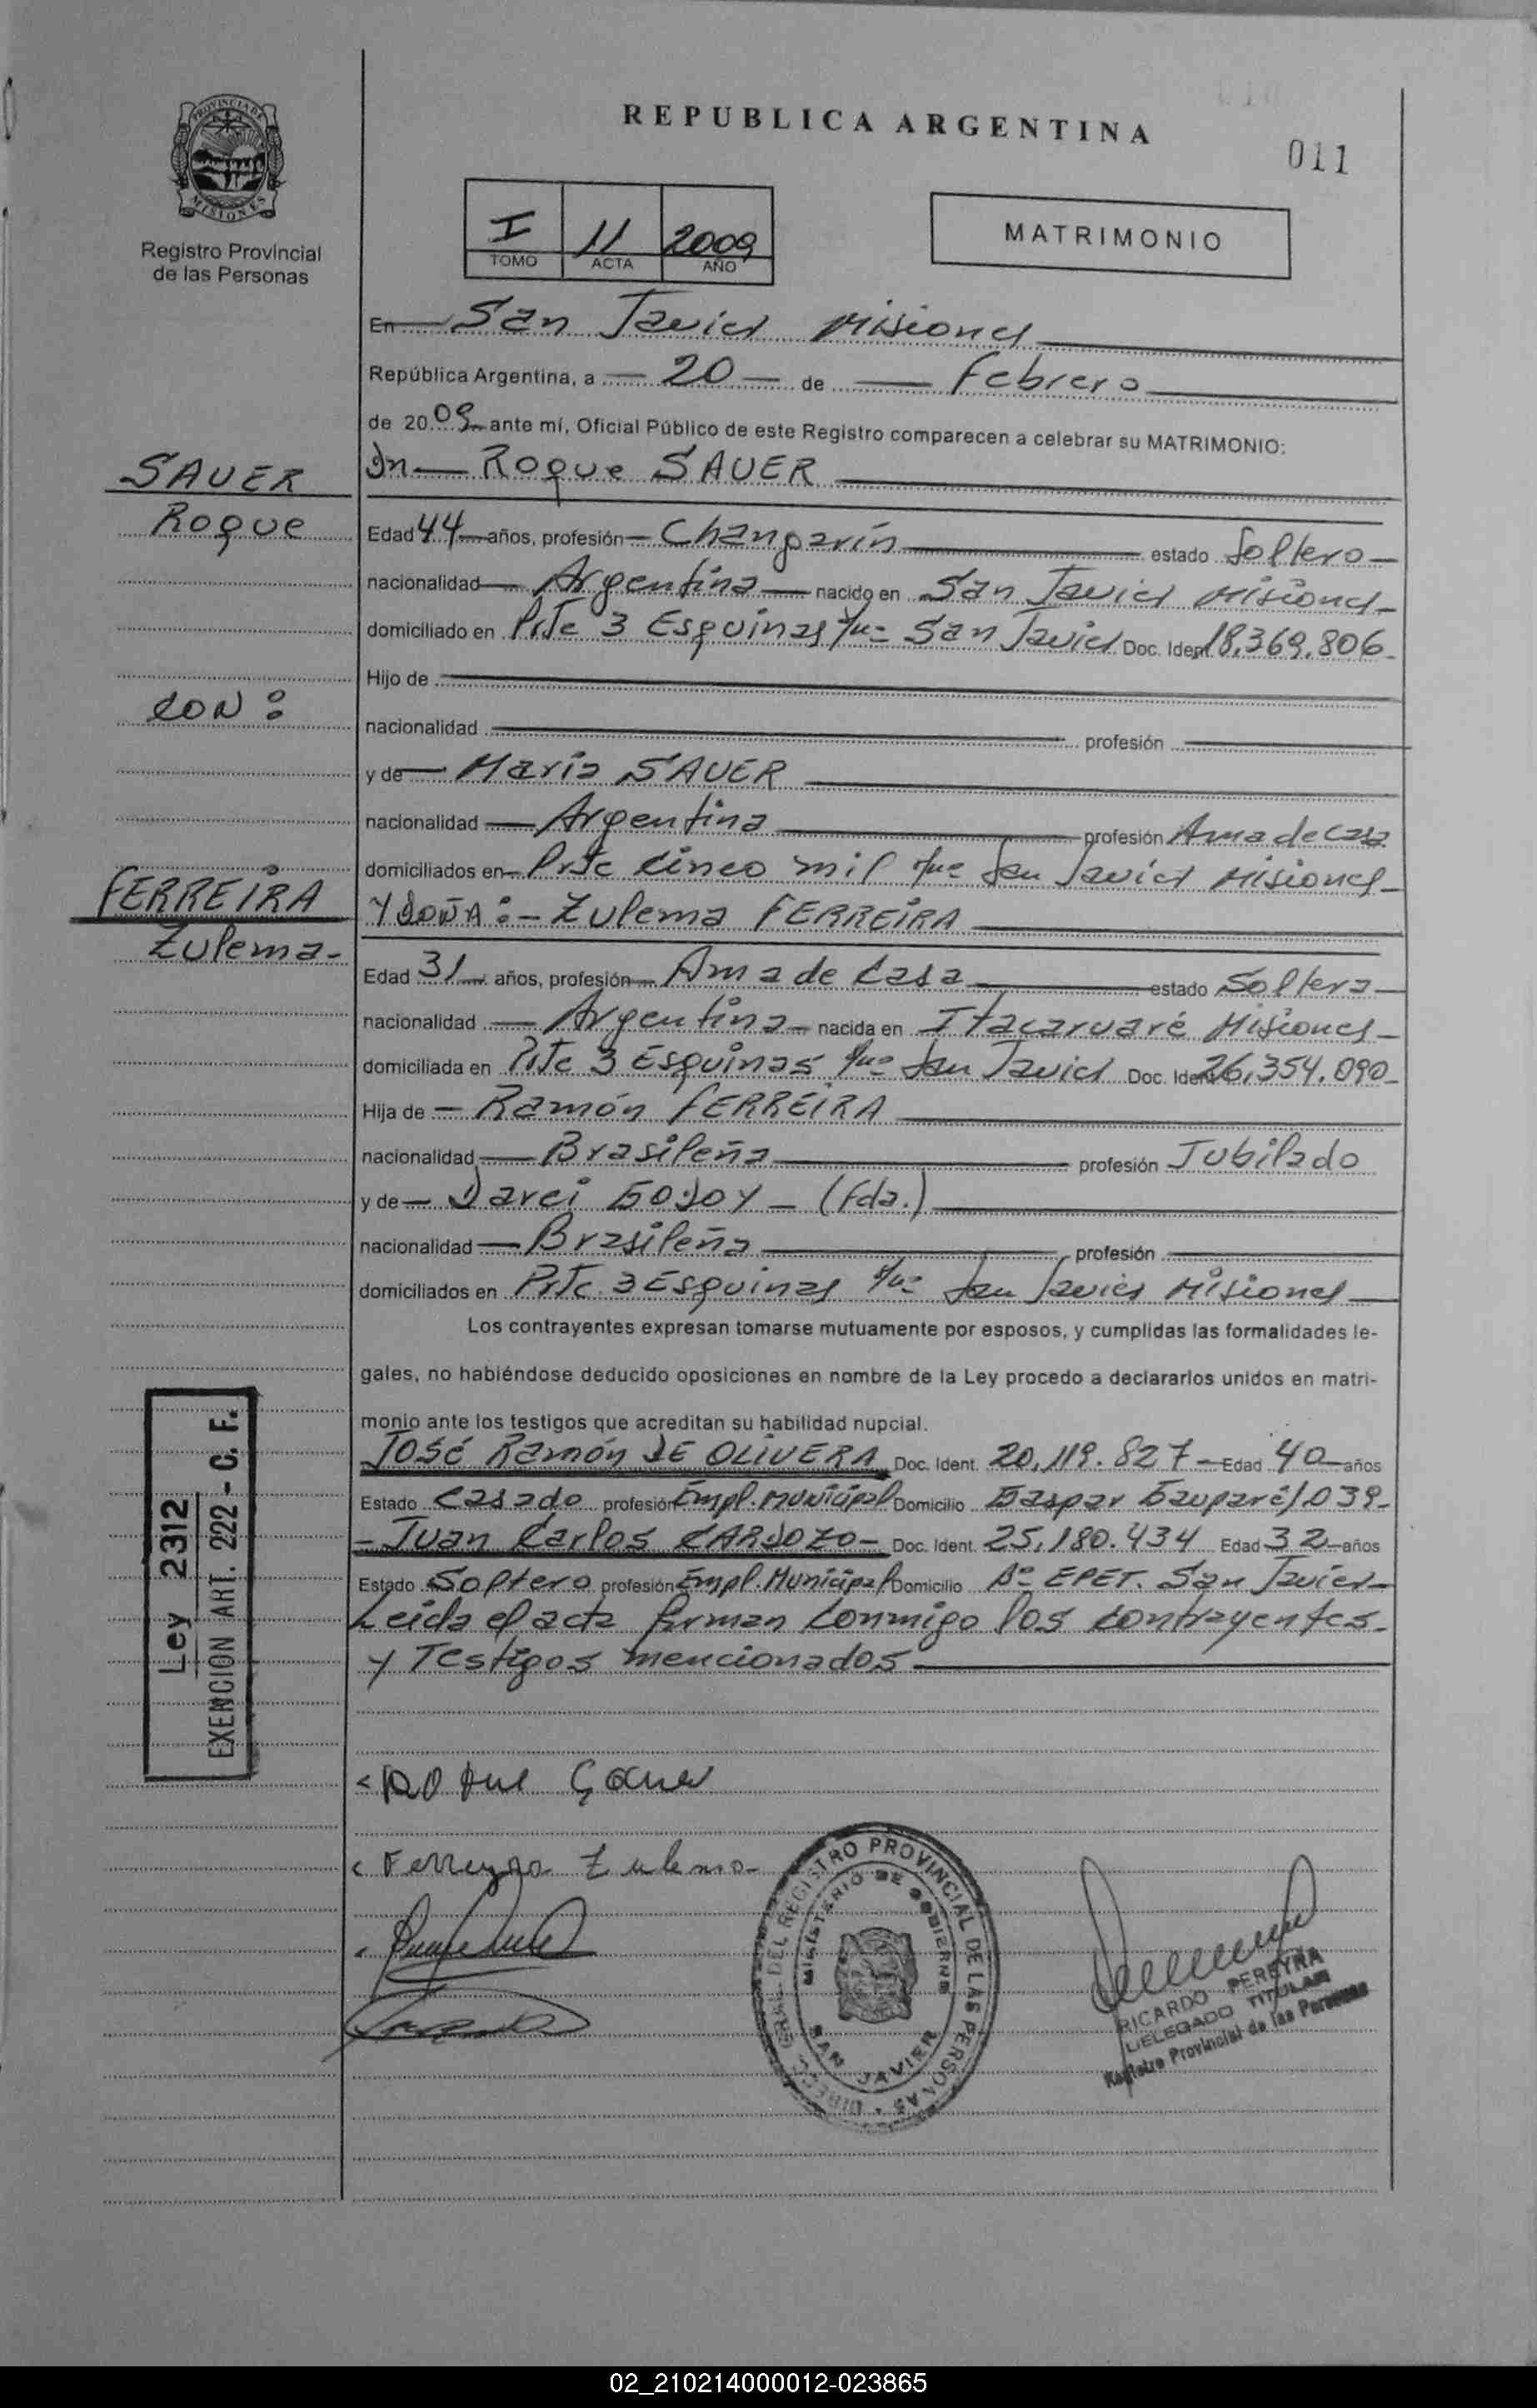 REPUBLICA ARGENTINA
011
PROVINCIA DE
MISIONES
Registro Provincial
de las Personas
I 11 2009
TOMO ACTA AÑO
MATRIMONIO
En San Javier Misiones
República Argentina, a 20 de Febrero
de 2009 ante mí, Oficial Público de este Registro comparecen a celebrar su MATRIMONIO:
SAUER
Dn Roque SAUER
Roque
Edad 44 años, profesión Changarín estado Soltero
nacionalidad Argentina nacido en San Javier Misiones
domiciliado en Pje 3 Esquinas San Javier Doc. Ident 18.369.806
Hijo de
CON:
nacionalidad profesión
y de María SAUER
nacionalidad Argentina profesión Ama de casa
domiciliados en cinco mil San Javier Misiones
FERREIRA
Y DOÑA: Zulema FERREIRA
Zulema
Edad 31 años, profesión Ama de Casa estado Soltera
nacionalidad Argentina nacida en Itacaruaré Misiones
domiciliada en 3 Esquinas San Javier Doc. Ident 26.354.090
Hija de Ramón FERREIRA
nacionalidad Brasileña profesión Jubilado
y de Darci GODOY (fda.)
nacionalidad Brasileña profesión
domiciliados en 3 Esquinas San Javier Misiones
Los contrayentes expresan tomarse mutuamente por esposos, y cumplidas las formalidades le-
gales, no habiéndose deducido oposiciones en nombre de la Ley procedo a declararlos unidos en matri-
monio ante los testigos que acreditan su habilidad nupcial.
José Ramón DE OLIVERA Doc. Ident. 20.119.827 Edad 40 años
Estado Casado profesión Empl. Municipal Domicilio Gaspar Gauparé 1.039
Juan Carlos CARDOZO Doc. Ident. 25.180.434 Edad 32 años
Estado Soltero profesión Empl. Municipal Domicilio Bº EPET. San Javier
Leída el acta firman conmigo los contrayentes
y Testigos mencionados
Ley 2312
EXENCION ART. 222 - C. F.
Roque Sauer
Ferreyra Zulema
DIRECC. GRAL. DEL REGISTRO PROVINCIAL DE LAS PERSONAS
MINISTERIO DE GOBIERNO
SAN JAVIER
RICARDO PEREYRA
DELEGADO TITULAR
Registro Provincial de las Personas
02_210214000012-023865